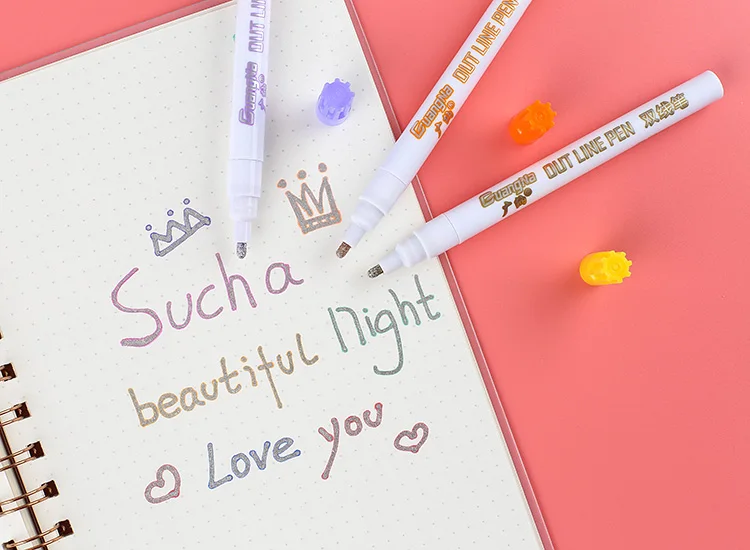 GuangNa DUT LINE
GuangNa DUT LINE PEN
GuangNa DUT LINE PEN 双线笔
Sucha
beautiful Night
Love you